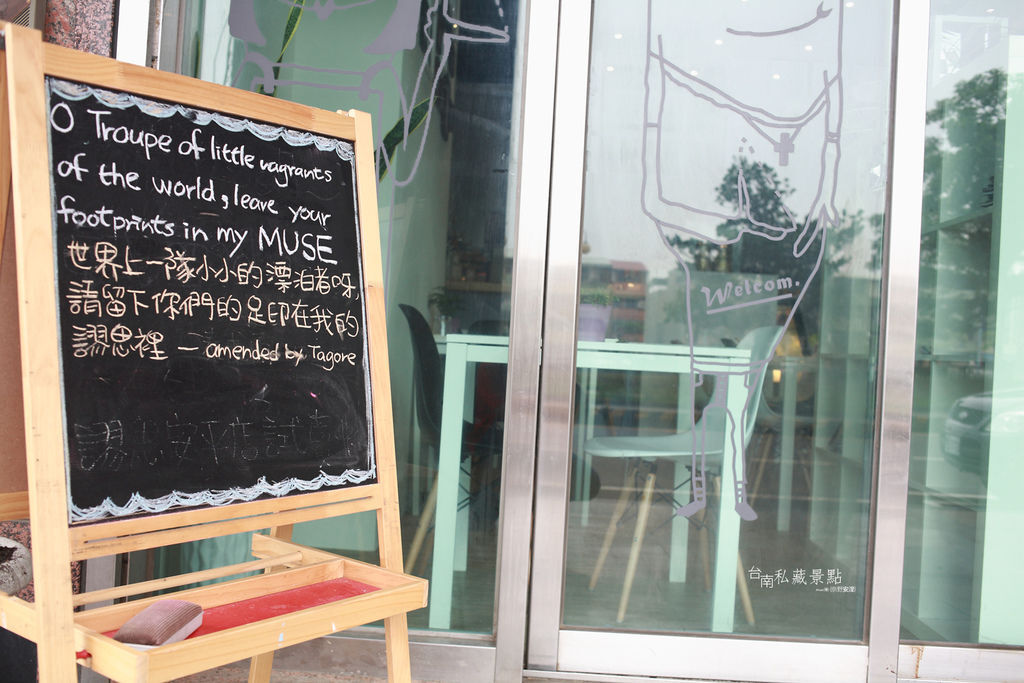 O Troupe of little vagrants
of the world, leave your
footprints in my MUSE
世界上一隊小小的漂泊者呀,
請留下你們的足印在我的
謬思裡 — amended by Tagore
Welcom.
台南私藏景點